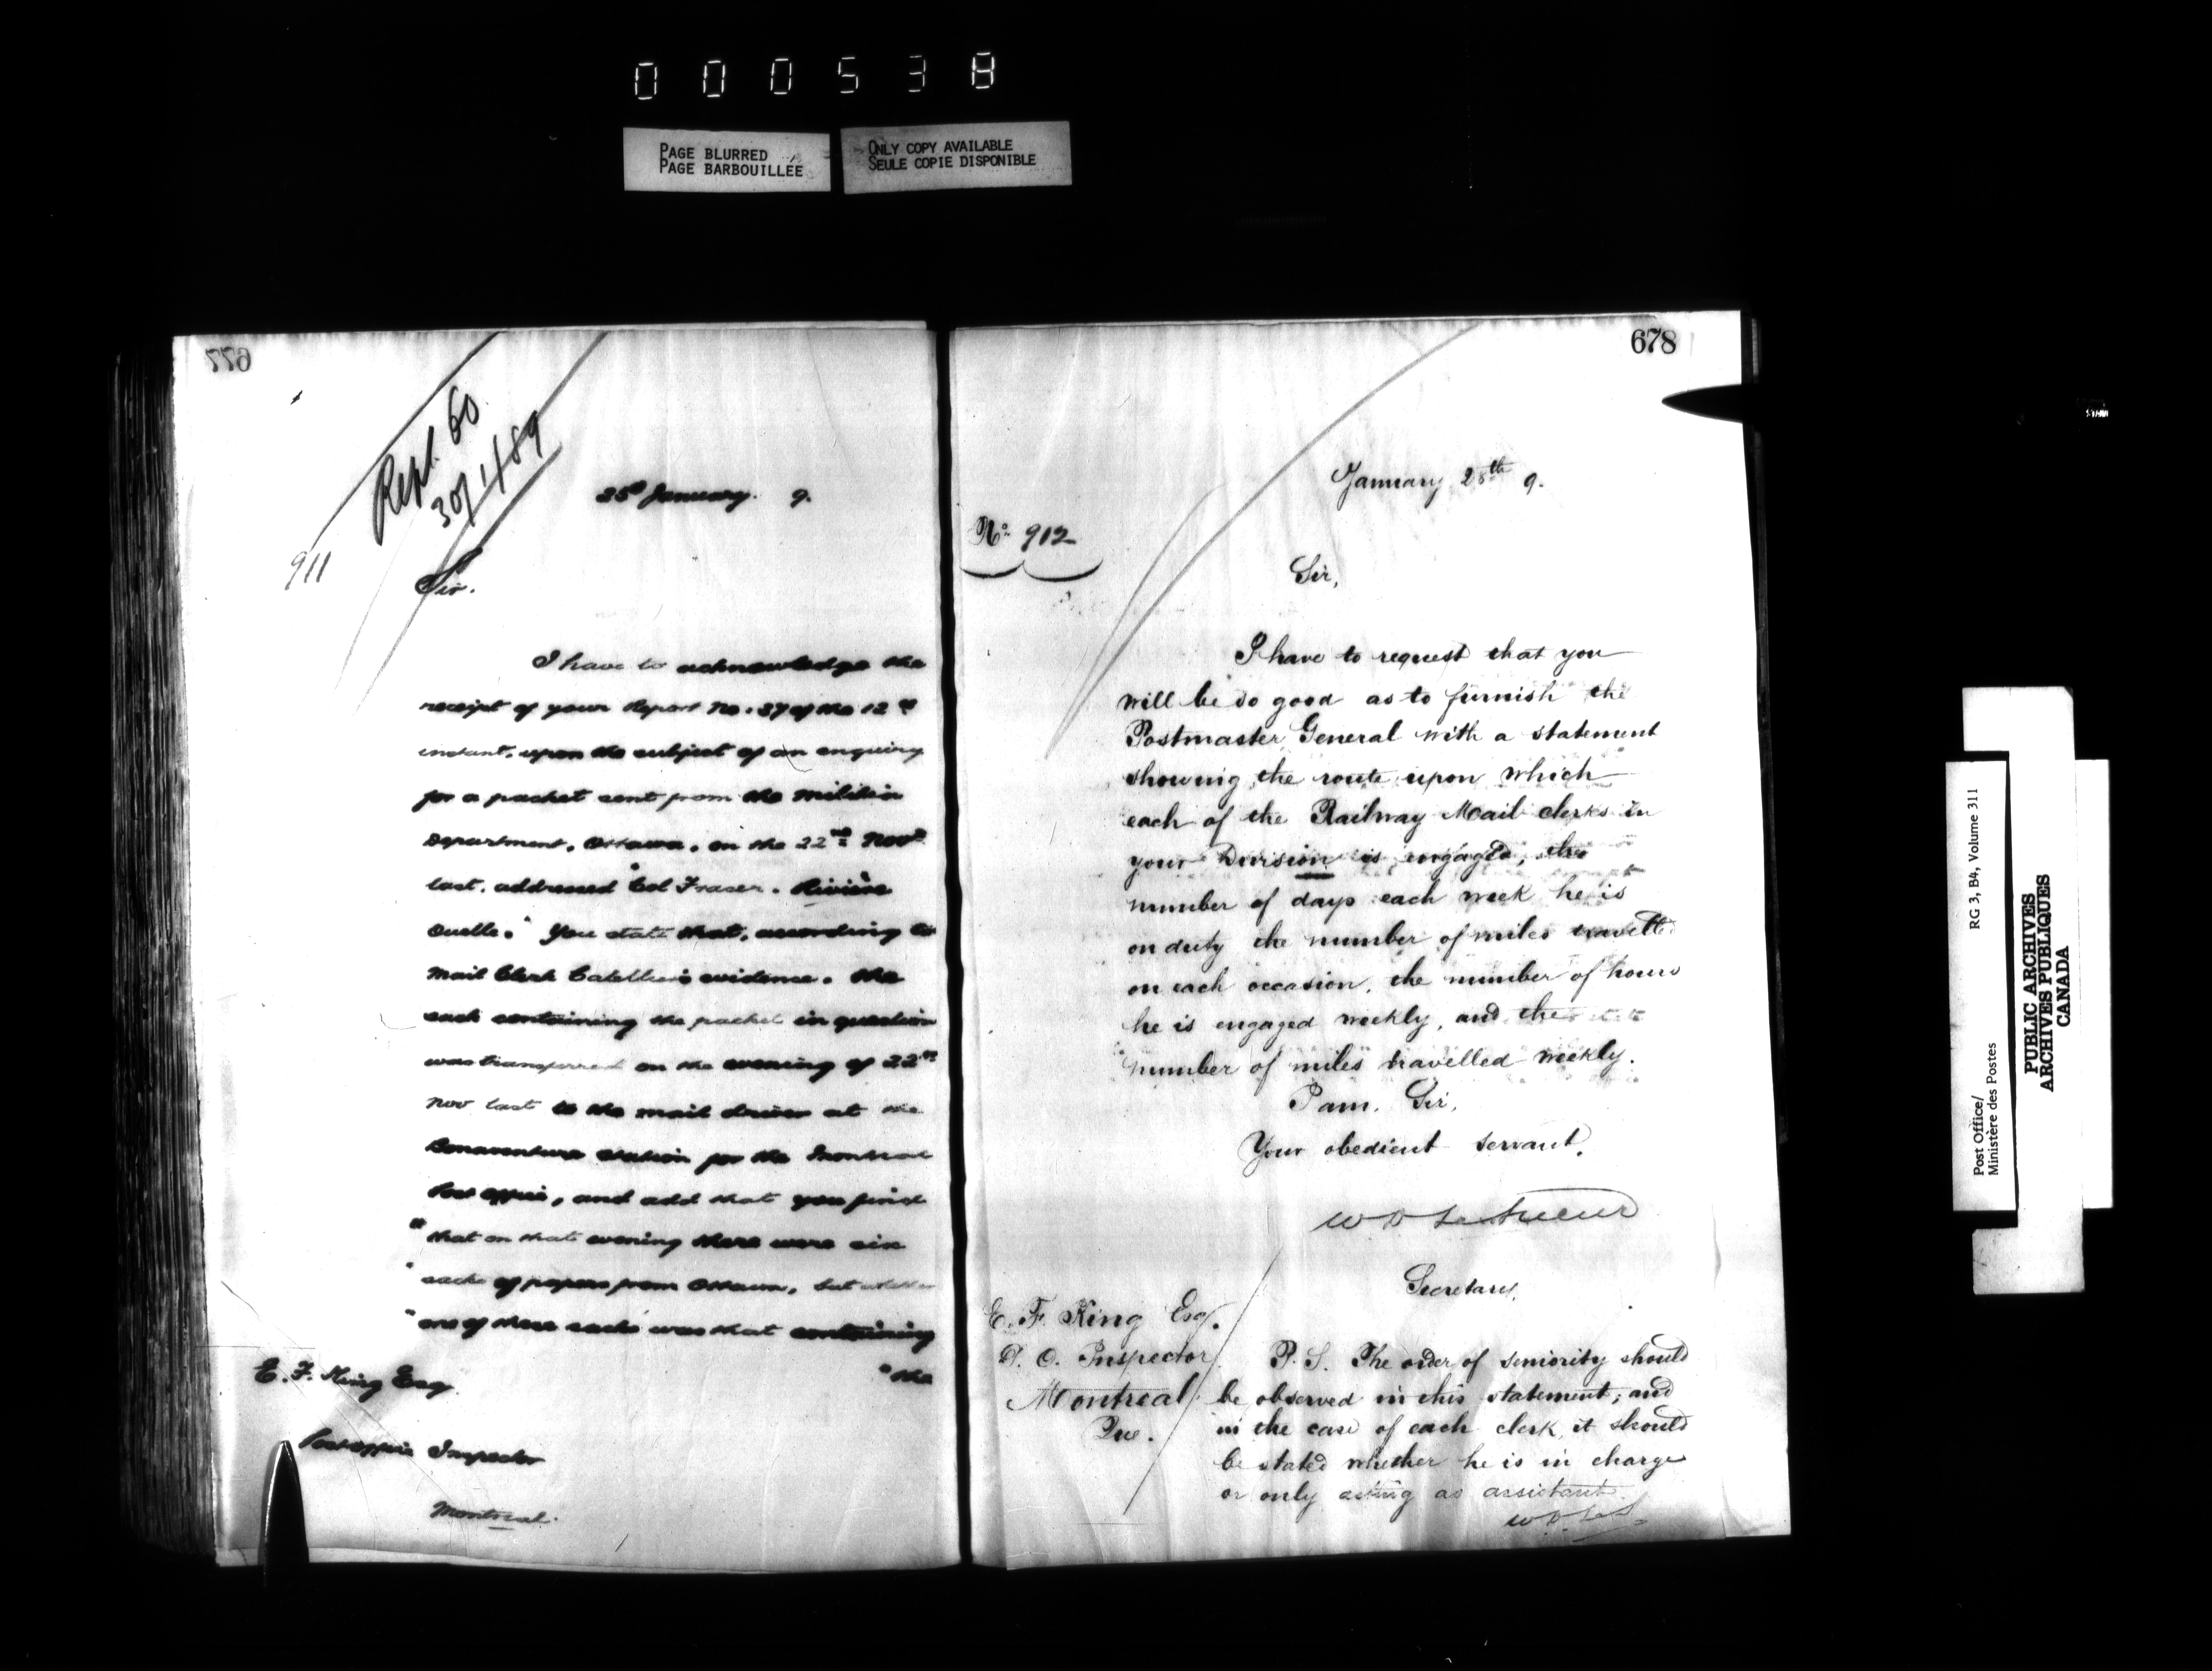 000538
PAGE BLURRED
PAGE BARBOUILLEE
ONLY COPY AVAILABLE
SEULE COPIE DISPONIBLE
677
Rept. 60
30/1/89
911
25th January. 9.
Sir.
I have to acknowledge the
receipt of your Report No. 37 of the 12th
instant, upon the subject of an enquiry
for a packet sent from the Militia
Department, Ottawa, on the 22nd Novr
last, addressed "Col Fraser. Rivière
Ouelle." You state that, according to
Mail Clerk evidence, the
sack containing the packet in question
was transferred on the evening of 22nd
Nov last to the mail driver at the
Bonaventure station for the Montreal
Post Office, and add that you find
"that on that evening there were six
"sacks of papers from Ottawa, but whether
"one of these sacks was that containing
"the
E. F. King Esq
Post Office Inspector
Montreal.
678
January 25th 9.
No. 912
Sir,
I have to request that you
will be so good as to furnish the
Postmaster General with a statement
showing the route upon which
each of the Railway Mail clerks in
your Division is engaged, the
number of days each week he is
on duty the number of miles travelled
on each occasion, the number of hours
he is engaged weekly, and the
number of miles travelled weekly.
I am, Sir,
Your obedient servant,
W D LeSueur
Secretary.
E. F. King Esq.
P. O. Inspector
Montreal
Que.
P.S. The order of seniority should
be observed in this statement; and
in the case of each clerk, it should
be stated whether he is in charge
or only acting as assistant.
W.D. LeS
Post Office/
Ministère des Postes
RG 3, B4, Volume 311
PUBLIC ARCHIVES
ARCHIVES PUBLIQUES
CANADA